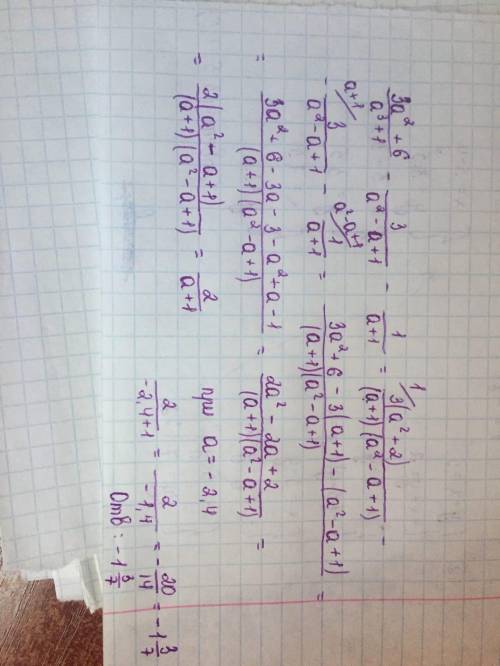 (3a² + 6)/(a³ + 1) − 3/(a² − a + 1) − 1/(a + 1) = ¹⁄ 3(a² + 2)/((a + 1)(a² − a + 1)) −
− ᵃ⁺¹⁄ 3/(a² − a + 1) − ᵃ²⁻ᵃ⁺¹⁄ 1/(a + 1) = (3a² + 6 − 3(a + 1) − (a² − a + 1))/((a + 1)(a² − a + 1)) =
= (3a² + 6 − 3a − 3 − a² + a − 1)/((a + 1)(a² − a + 1)) = (2a² − 2a + 2)/((a + 1)(a² − a + 1)) =
= 2(a² − a + 1)/((a + 1)(a² − a + 1)) = 2/(a + 1) при a = −2,4
2/(−2,4 + 1) = 2/(−1,4) = −20/14 = −1 3/7
Отв: −1 3/7